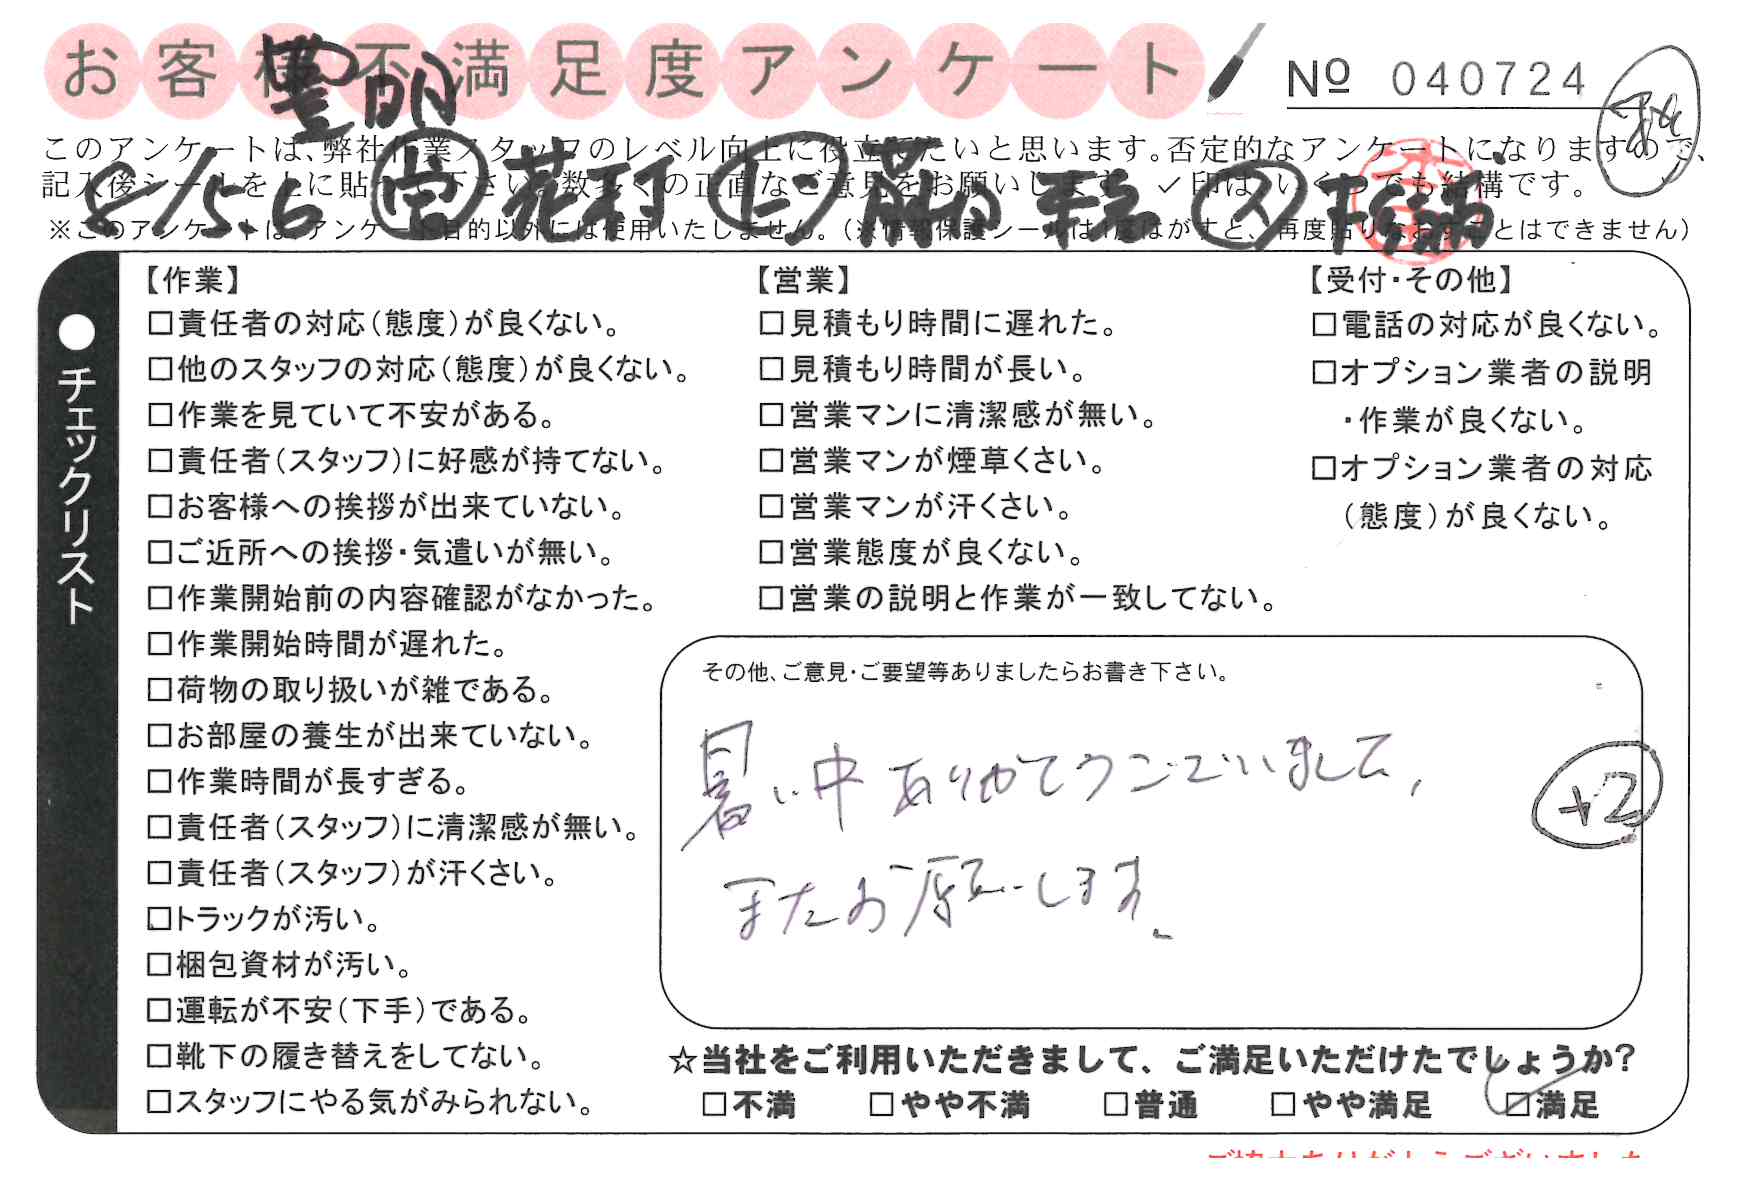 お客様不満足度アンケート
豊明
№ 040724
このアンケートは、弊社作業スタッフのレベル向上に役立てたいと思います。否定的なアンケートになりますので、
記入後シールを上に貼って下さい。数多くの正直なご意見をお願いします。✓印は、いくつでも結構です。
8/5.6 営 花村
※このアンケートは、アンケート目的以外には使用いたしません。(※情報保護シールは1度はがすと、再度貼りなおすことはできません)
●チェックリスト
【作業】
□責任者の対応(態度)が良くない。
□他のスタッフの対応(態度)が良くない。
□作業を見ていて不安がある。
□責任者(スタッフ)に好感が持てない。
□お客様への挨拶が出来ていない。
□ご近所への挨拶・気遣いが無い。
□作業開始前の内容確認がなかった。
□作業開始時間が遅れた。
□荷物の取り扱いが雑である。
□お部屋の養生が出来ていない。
□作業時間が長すぎる。
□責任者(スタッフ)に清潔感が無い。
□責任者(スタッフ)が汗くさい。
□トラックが汚い。
□梱包資材が汚い。
□運転が不安(下手)である。
□靴下の履き替えをしてない。
□スタッフにやる気がみられない。
【営業】
□見積もり時間に遅れた。
□見積もり時間が長い。
□営業マンに清潔感が無い。
□営業マンが煙草くさい。
□営業マンが汗くさい。
□営業態度が良くない。
□営業の説明と作業が一致してない。
【受付・その他】
□電話の対応が良くない。
□オプション業者の説明
・作業が良くない。
□オプション業者の対応
(態度)が良くない。
その他、ご意見・ご要望等ありましたらお書き下さい。
暑い中ありがとうございまして、
またお願いします。
+2
☆当社をご利用いただきまして、ご満足いただけたでしょうか?
□不満 □やや不満 □普通 □やや満足 ☑満足
ご協力ありがとうございました